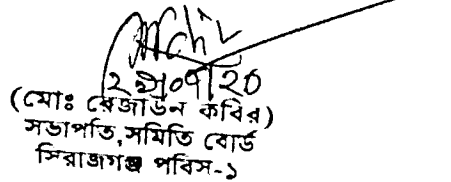 (মোঃ রেজাউন কবির)
সভাপতি, সমিতি বোর্ড
সিরাজগঞ্জ পবিস-১